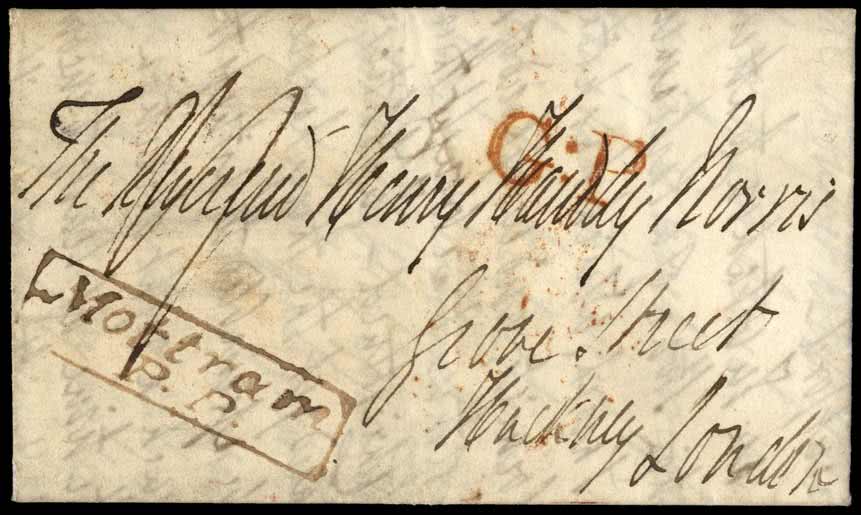 G.P
The Reverend Henry Handley Norris
Grove Street
Hackney London
Mottram
P.P.